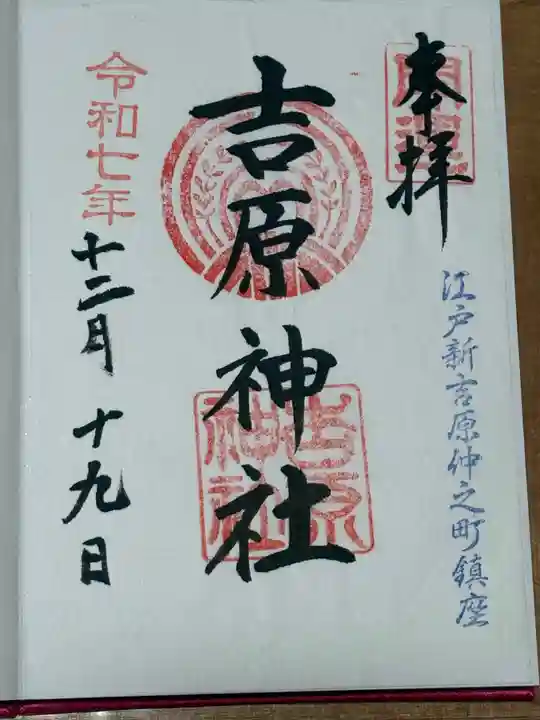 奉拝
開運
江戸新吉原仲之町鎮座
吉原神社
吉原神社
令和七年
十二月十九日